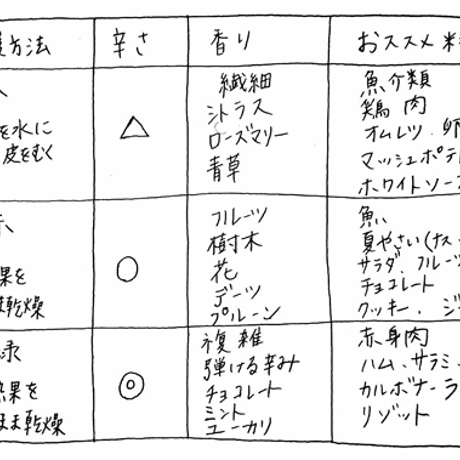 方法 辛さ 香り おススメ料
を水に
皮をむく
△
繊細
シトラス
ローズマリー
青草
魚介類
鶏肉
オムレツ、卵
マッシュポテ
ホワイトソー
赤、
果を
ま乾燥
○
フルーツ
樹木
花
デーツ
プルーン
魚、
夏やさい(ナス
サラダ、フルーツ
チョコレート
クッキー、ジ
緑
熟果を
まま乾燥
◎
複雑
弾ける辛み
チョコレート
ミント
ユーカリ
赤身肉
ハム、サラミ、
カルボナーラ
リゾット